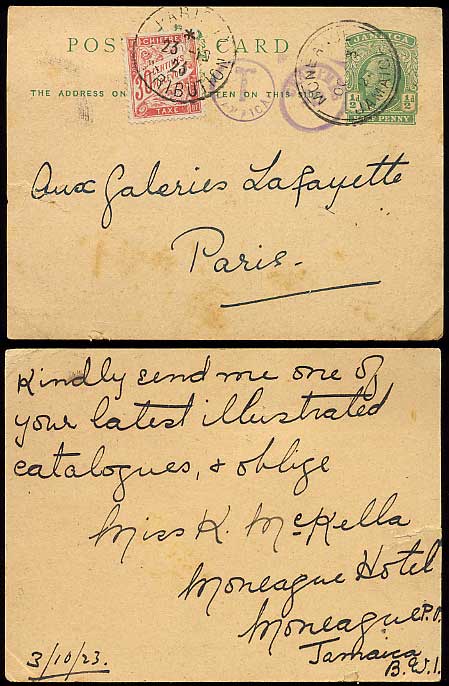 POST CARD
JAMAICA
THE ADDRESS ON TEN ON THIS
½d ½d
HALF PENNY
CHIFFRE
30
TAXE
PARIS
DISTRIBUTION
T
JAMAICA
Aux Galeries Lafayette
Paris-
Kindly send me one of
your latest illustrated
catalogues, & oblige
Miss K. McKella
Moneague Hotel
Moneague P.O.
Jamaica
B.W.I.
3/10/23.